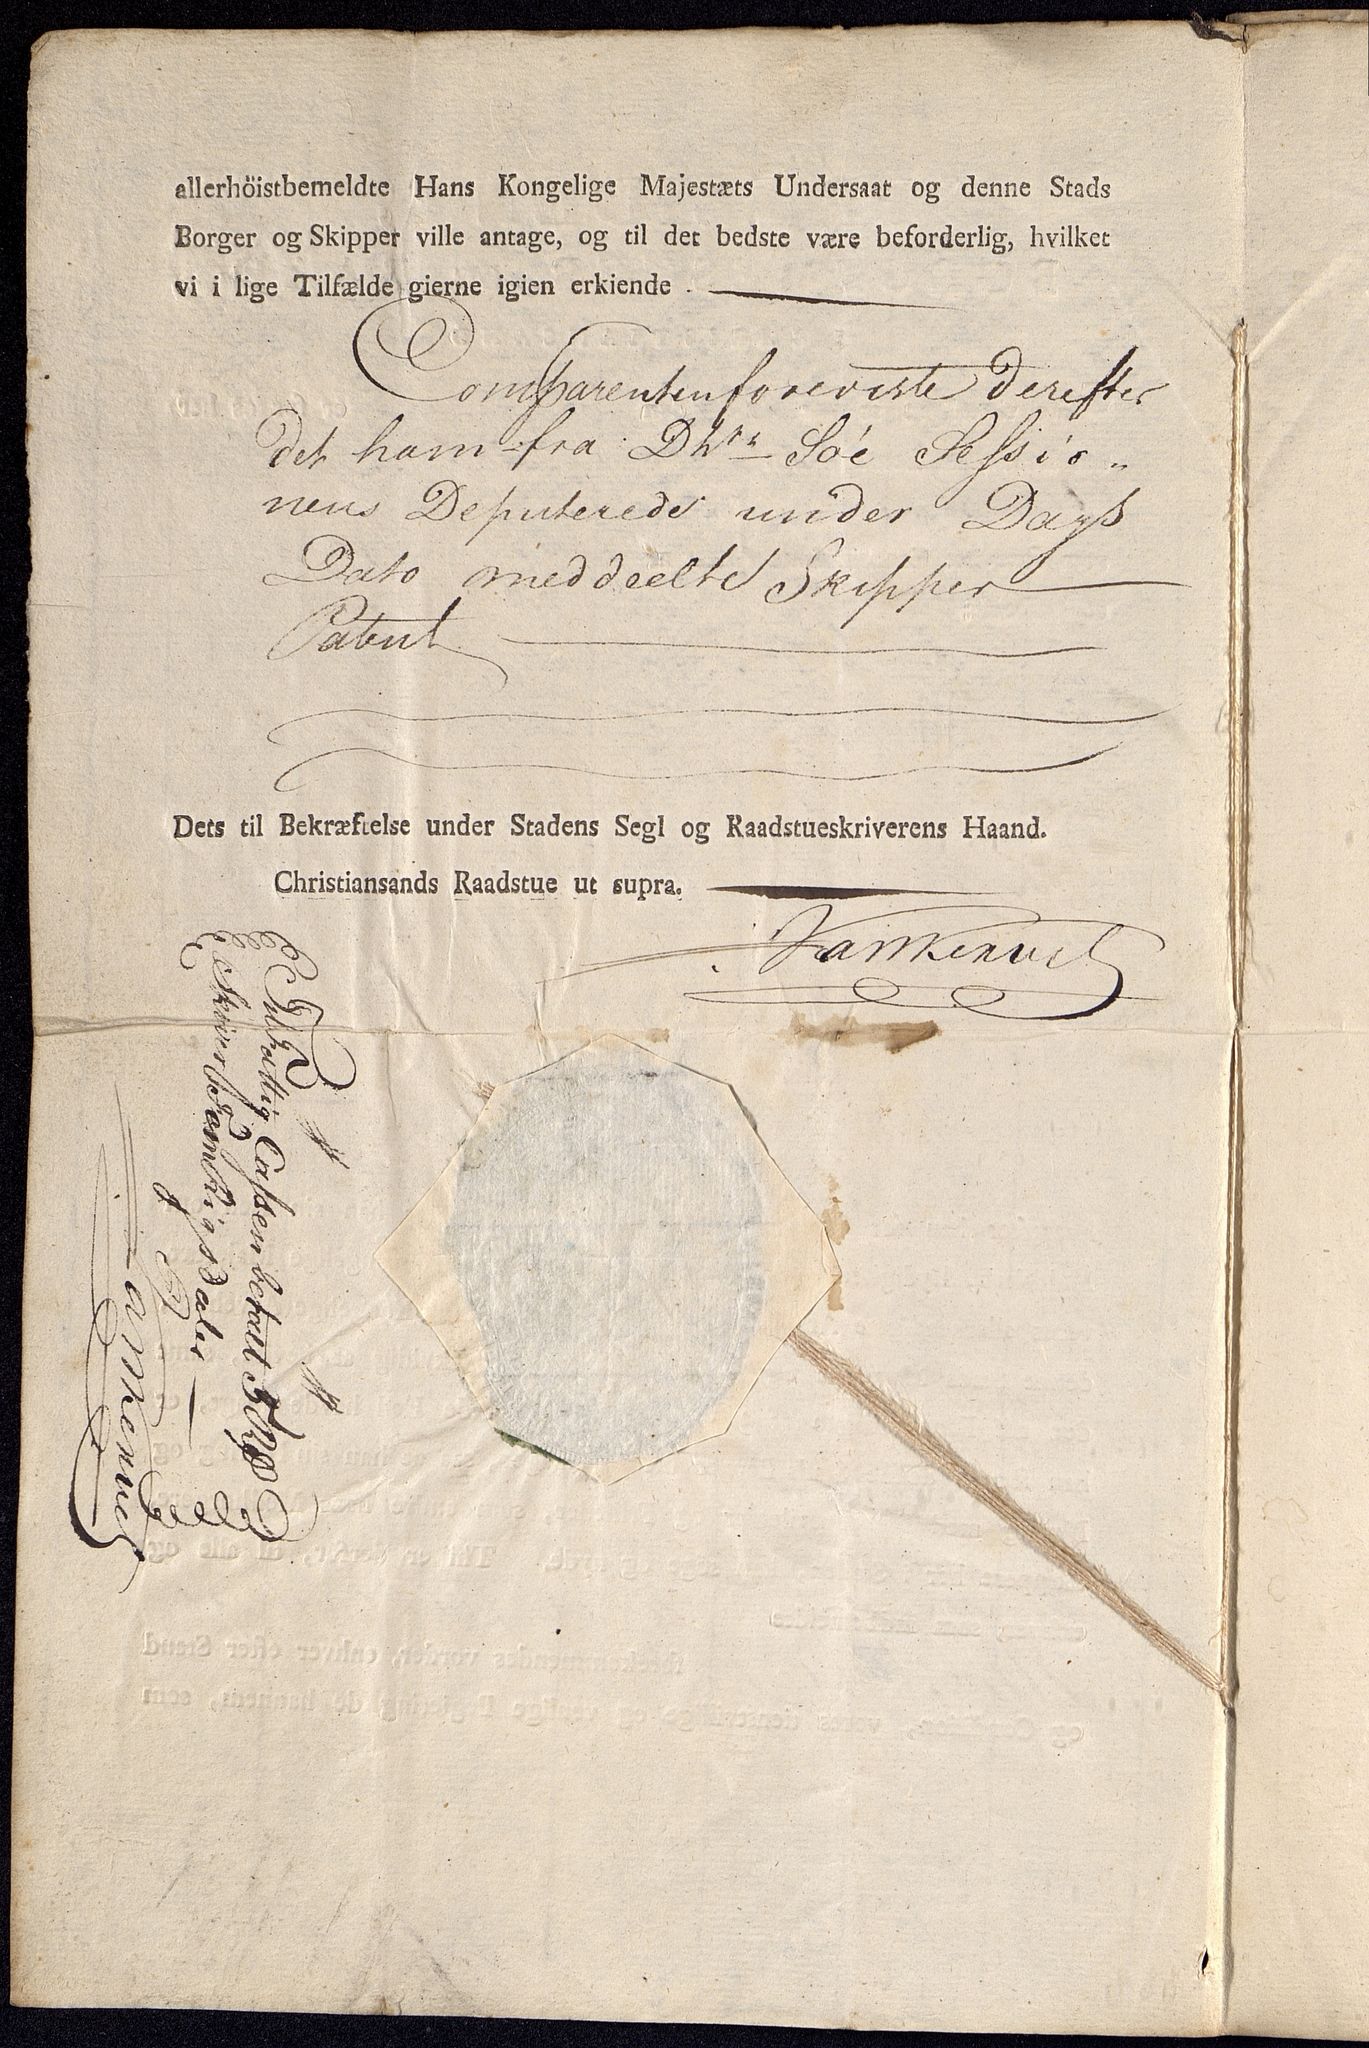 allerhöistbemeldte Hans Kongelige Majestæts Undersaat og denne Stads
Borger og Skipper ville antage, og til det bedste være beforderlig, hvilket
vi i lige Tilfælde gierne igien erkiende .
Comparenten foreviste derefter
det ham fra Dhrr Söe Sessio„
nens Deputerede under Dags
Dato meddeelte Skipper
Patent
Dets til Bekræftelse under Stadens Segl og Raadstueskriverens Haand.
Christiansands Raadstue ut supra.
Cassen betalt 5 Rd
Skriver fem Rigsdaler